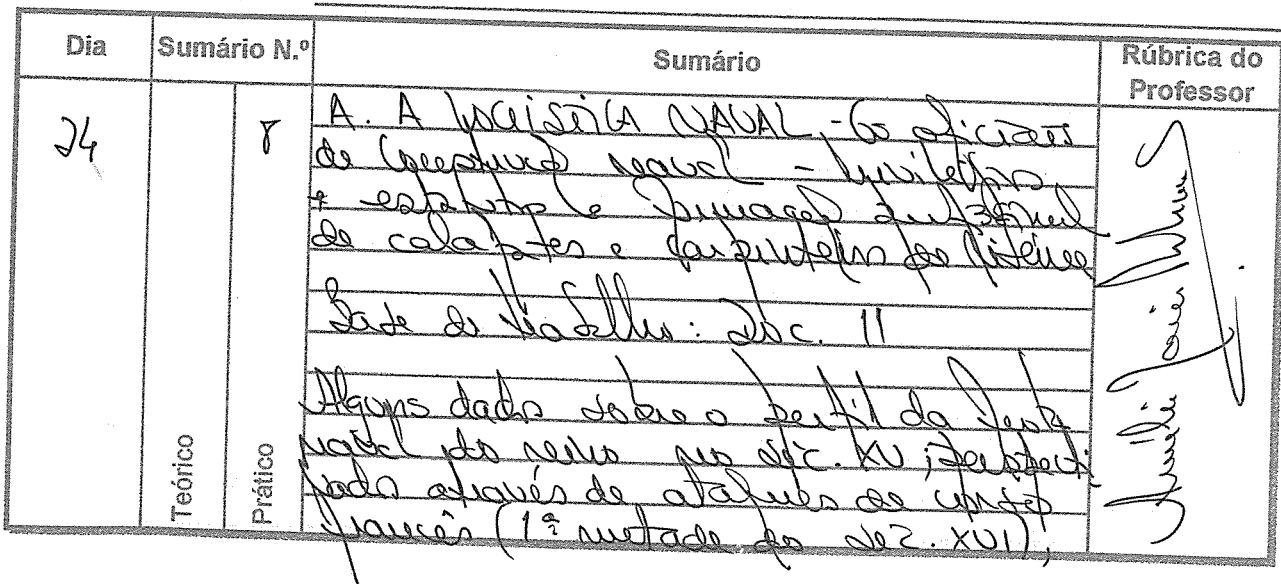 Dia
Sumário N.º
Sumário
Rúbrica do
Professor
24
8
Teórico
Prático
A. A LOGÍSTICA NAVAL - Os oficiais
de construção naval - privilégios,
estatuto e
de calafates e carpinteiros da Ribeira
Base de trabalho: Doc. 11
Alguns dados sobre o perfil da frota
naval do reino no séc. XV
através de ataques de corso
francês (1ª metade do séc. XVI),